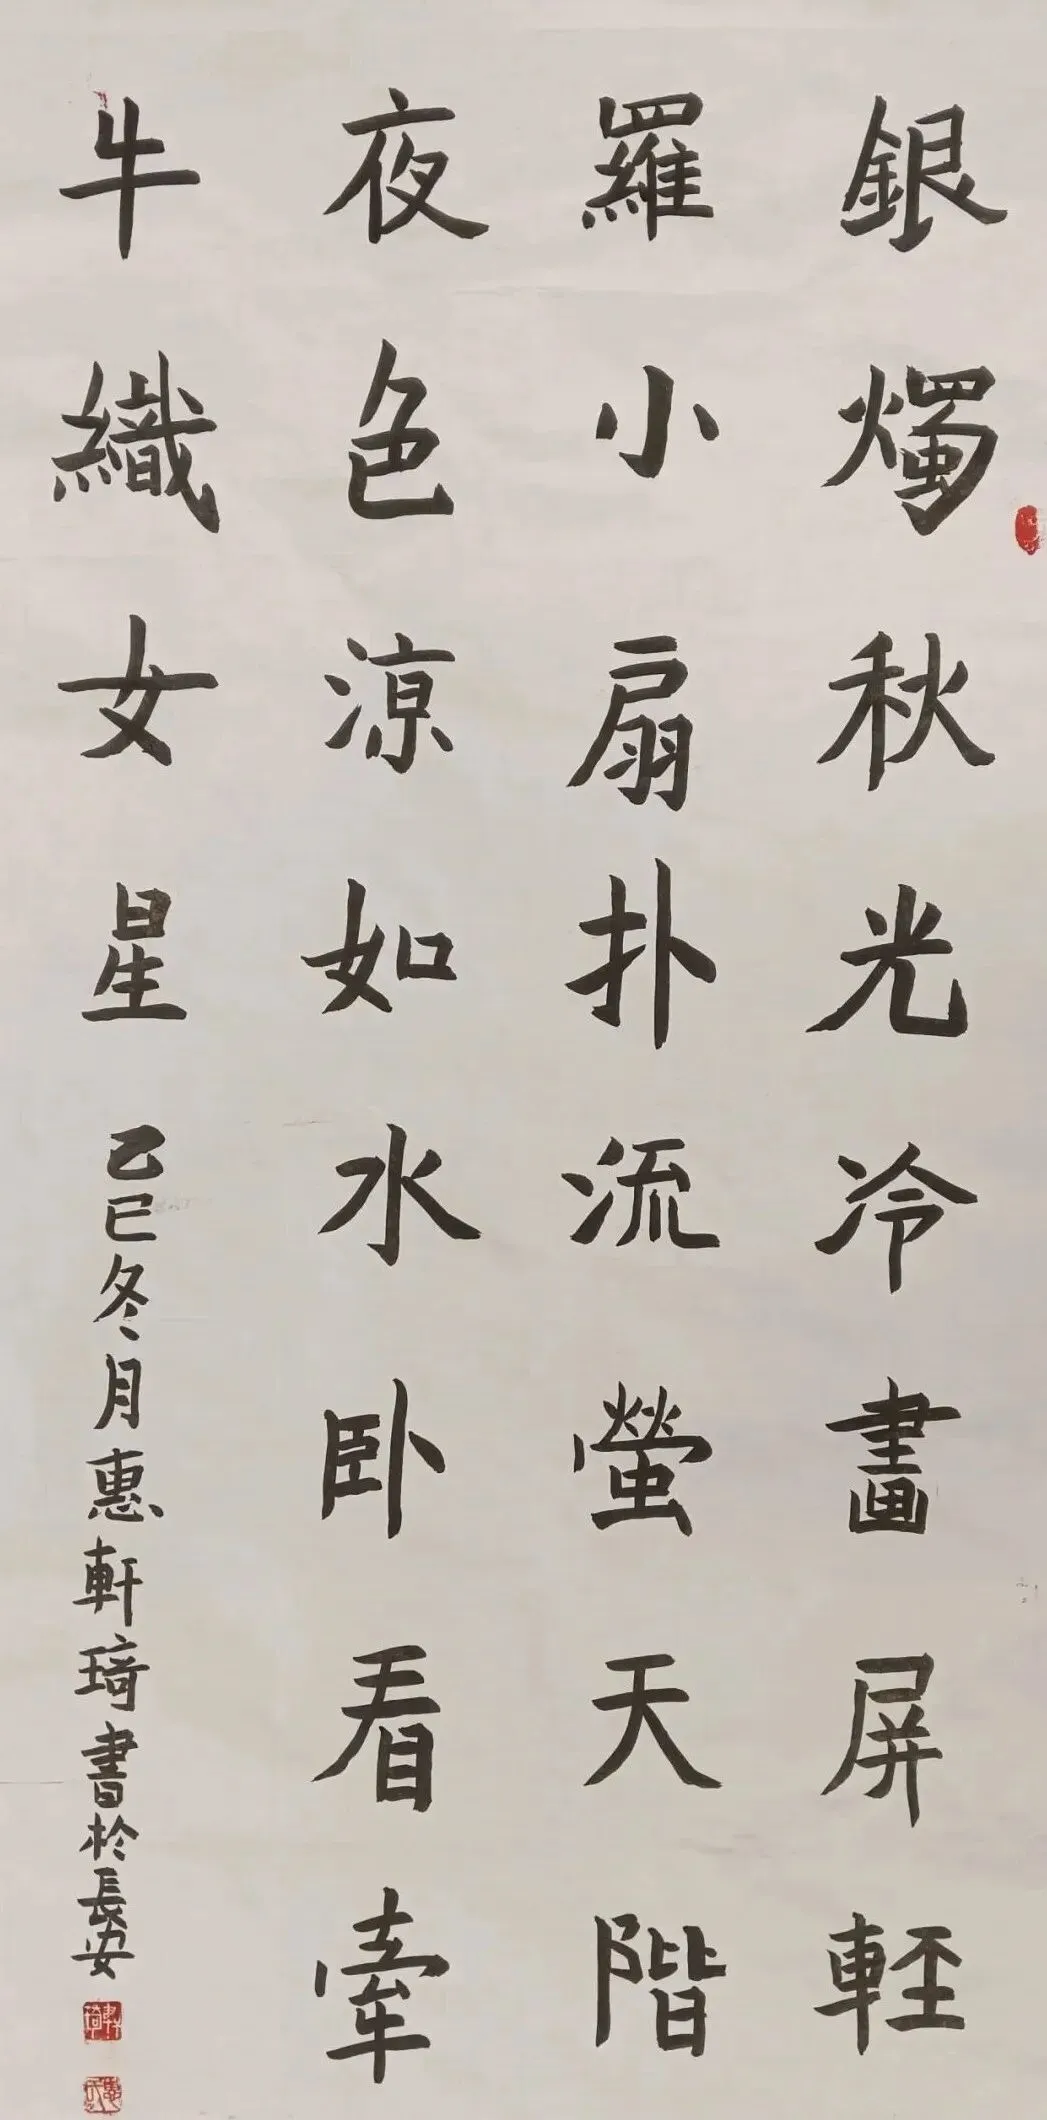 銀燭秋光冷畫屏輕
羅小扇扑流螢天階
夜色凉如水卧看牽
牛織女星
乙巳冬月惠軒琦書於長安